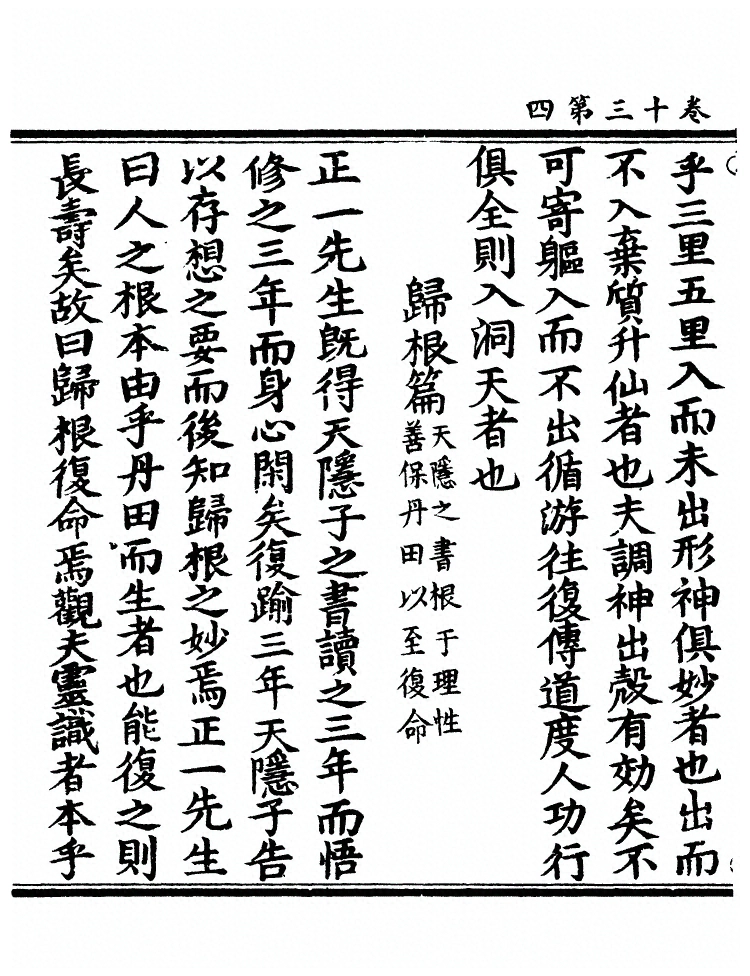 卷十三第四
乎三里五里入而未出形神俱妙者也出而
不入棄質升仙者也夫調神出殼有効矣不
可寄軀入而不出循游往復傳道度人功行
俱全則入洞天者也
歸根篇
天隱之書根于理性
善保丹田以至復命
正一先生旣得天隱子之書讀之三年而悟
修之三年而身心閑矣復踰三年天隱子告
以存想之要而後知歸根之妙焉正一先生
曰人之根本由乎丹田而生者也能復之則
長壽矣故曰歸根復命焉觀夫靈識者本乎